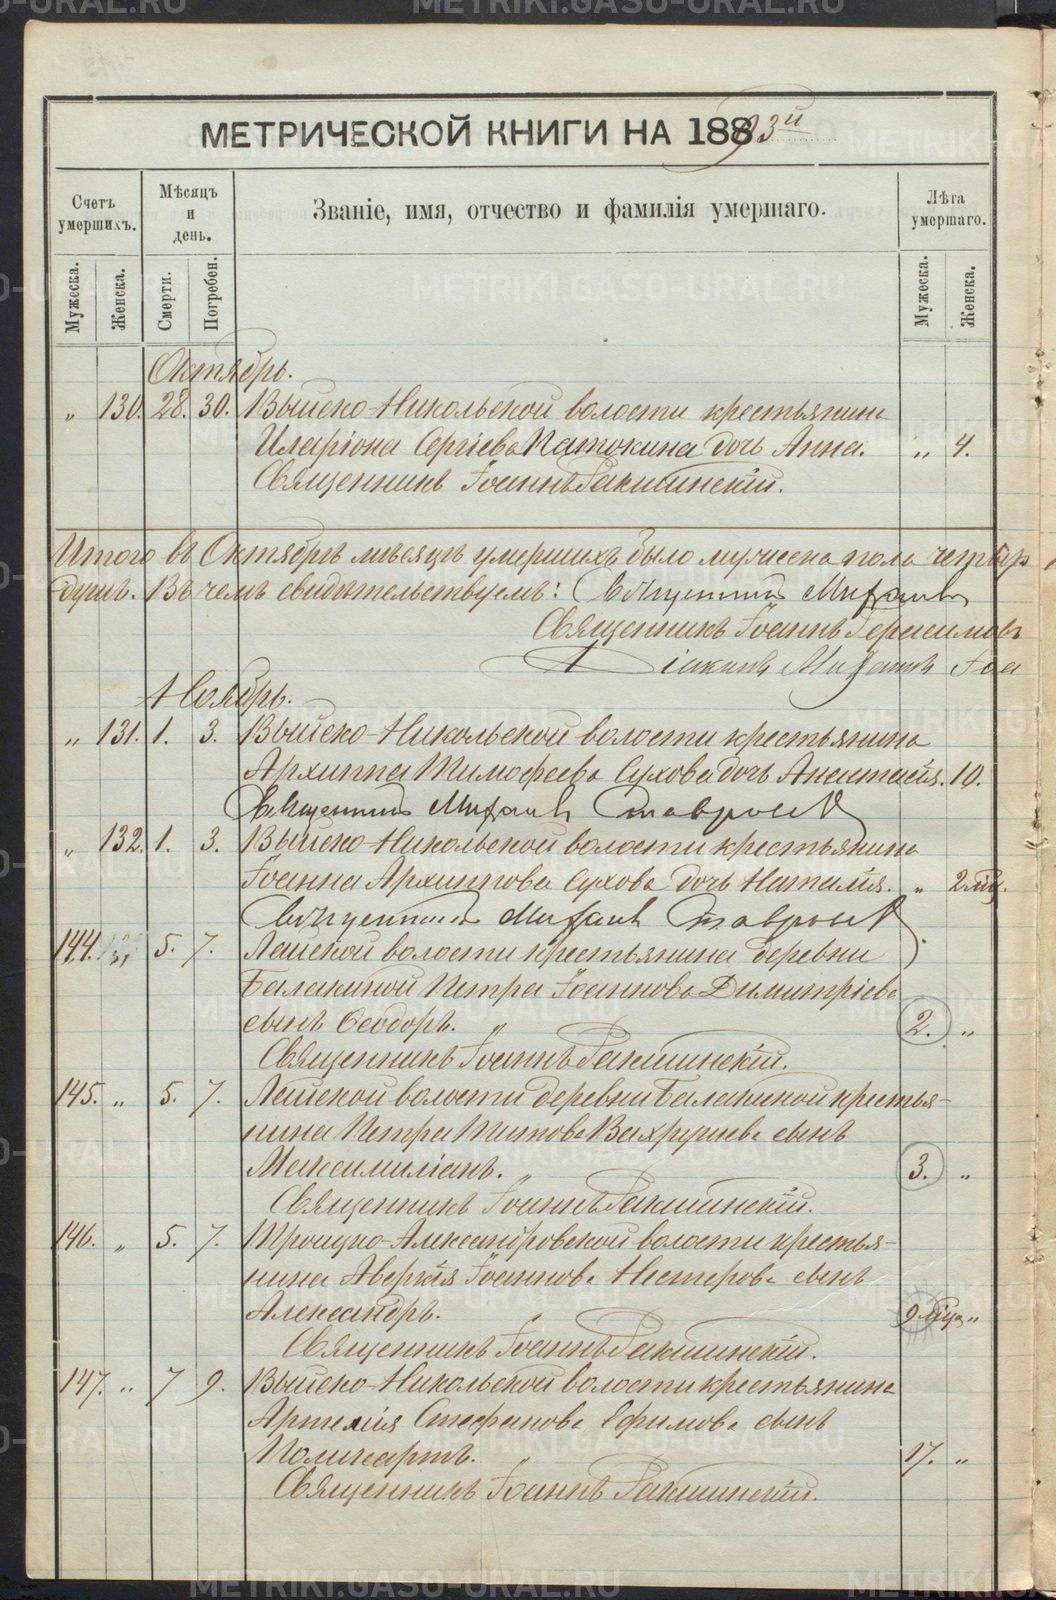 МЕТРИЧЕСКОЙ КНИГИ НА 1893й
Счетъ умершихъ.
Мѣсяцъ и день.
Званіе, имя, отчество и фамилія умершаго.
Лѣта умершаго.
Мужеска.
Женска.
Смерти.
Погребен.
Мужеска.
Женска.
Октябрь.
„ 130. 28. 30. Выйско-Никольской волости крестьянина
Иларіона Сергіева Патокина дочь Анна. „ 4.
Священникъ Іоаннъ
Итого въ Октябрѣ мѣсяцѣ умершихъ было мужеска пола четыр
душъ. Въ чемъ свидѣтельствуемъ: Священникъ Михаилъ
Священникъ Іоаннъ Герасимовъ
Діаконъ Михаилъ
Ноябрь.
„ 131. 1. 3. Выйско-Никольской волости крестьянина
Архиппа Тимофеева Сухова дочь Анастасія. 10.
Священникъ Михаилъ
„ 132. 1. 3. Выйско-Никольской волости крестьянина
Іоанна Архиппова Сухова дочь Наталія. „ 2 мц.
Священникъ Михаилъ
144. 5. 7. Лайской волости крестьянина деревни
Балакиной Петра Іоаннова Димитріева
сынъ Ѳеодоръ. 2. „
Священникъ Іоаннъ
145. „ 5. 7. Лайской волости деревни Балакиной крестья-
нина Петра Титова Вахрушева сынъ
Максимиліанъ. 3. „
Священникъ Іоаннъ
146. „ 5. 7. Троицко-Александровской волости крестья-
нина Аверкія Іоаннова Нестерова сынъ
Александръ. 9 мца „
Священникъ Іоаннъ
147. „ 7 9. Выйско-Никольской волости крестьянина
Артемія Стефанова Ефимова сынъ
Поликарпъ. 17. „
Священникъ Іоаннъ
METRIKI.GASO-URAL.RU